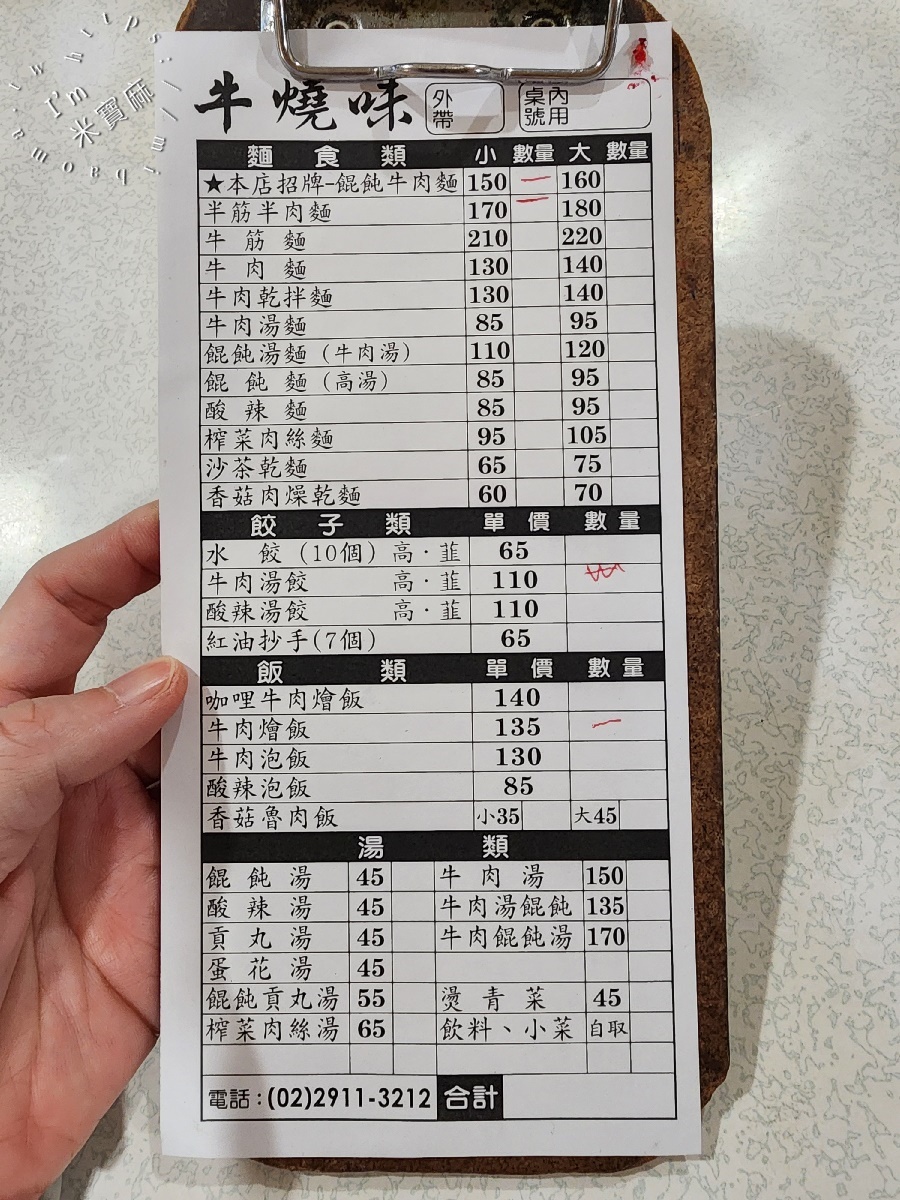 I'm
米寶麻
牛燒味 外帶 桌號 內用
麵食類 小 數量 大 數量
★本店招牌-餛飩牛肉麵 150 一 160
半筋半肉麵 170 一 180
牛筋麵 210 220
牛肉麵 130 140
牛肉乾拌麵 130 140
牛肉湯麵 85 95
餛飩湯麵(牛肉湯) 110 120
餛飩麵(高湯) 85 95
酸辣麵 85 95
榨菜肉絲麵 95 105
沙茶乾麵 65 75
香菇肉燥乾麵 60 70
餃子類 單價 數量
水餃(10個) 高·韮 65
牛肉湯餃 高·韮 110
酸辣湯餃 高·韮 110
紅油抄手(7個) 65
飯類 單價 數量
咖哩牛肉燴飯 140
牛肉燴飯 135 一
牛肉泡飯 130
酸辣泡飯 85
香菇魯肉飯 小35 大45
湯類
餛飩湯 45 牛肉湯 150
酸辣湯 45 牛肉湯餛飩 135
貢丸湯 45 牛肉餛飩湯 170
蛋花湯 45
餛飩貢丸湯 55 燙青菜 45
榨菜肉絲湯 65 飲料、小菜 自取
電話:(02)2911-3212 合計